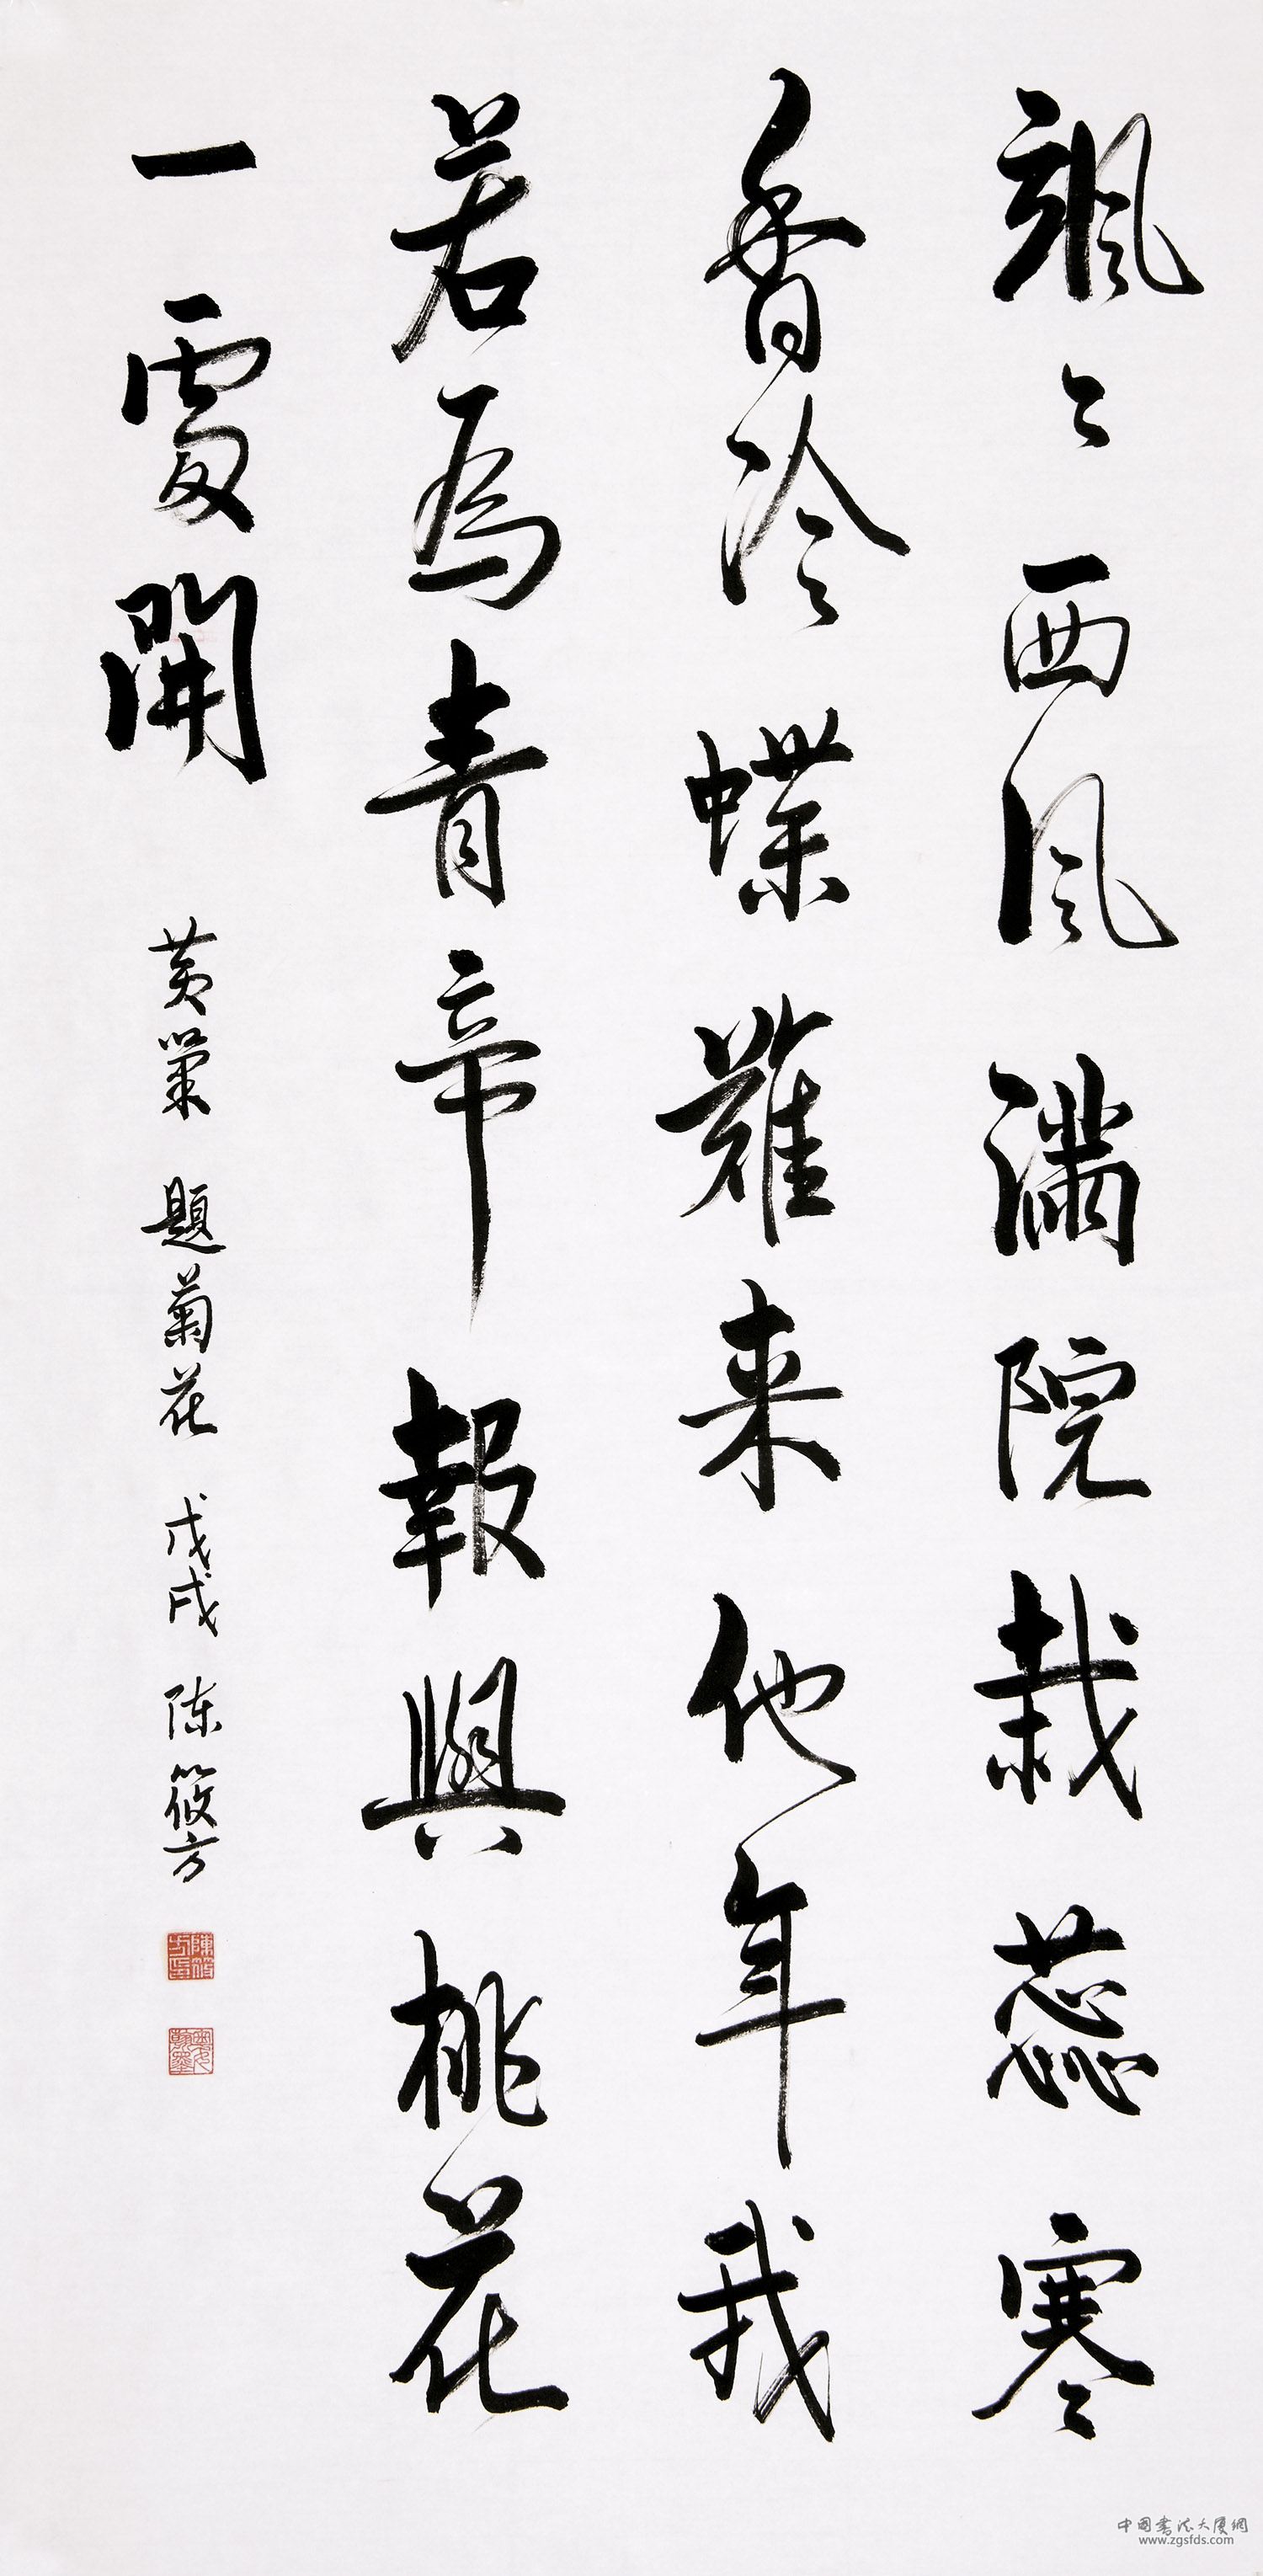 飒々西風满院栽蕊寒
香冷蝶難来他年我
若為青帝報與桃花
一處開
黄巢 题菊花 戊戌 陈筱方
陳筱方印
中国书法大厦網
www.zgsfds.com